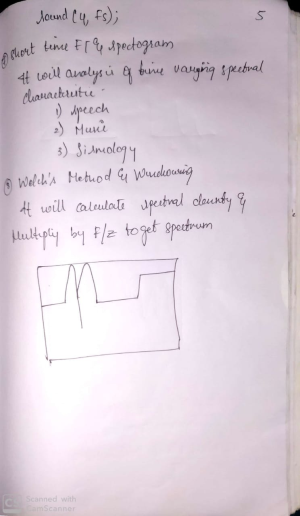 sound (y, Fs);
5
⑧ Short time FT & spectogram
It will analysis of time varying spectral
Characteristic.
1) speech
2) Music
3) Sismology
⑨ Welch's Method & Windowing
It will calculate spectral density &
Multiply by F/z to get spectrum
Scanned with
CamScanner